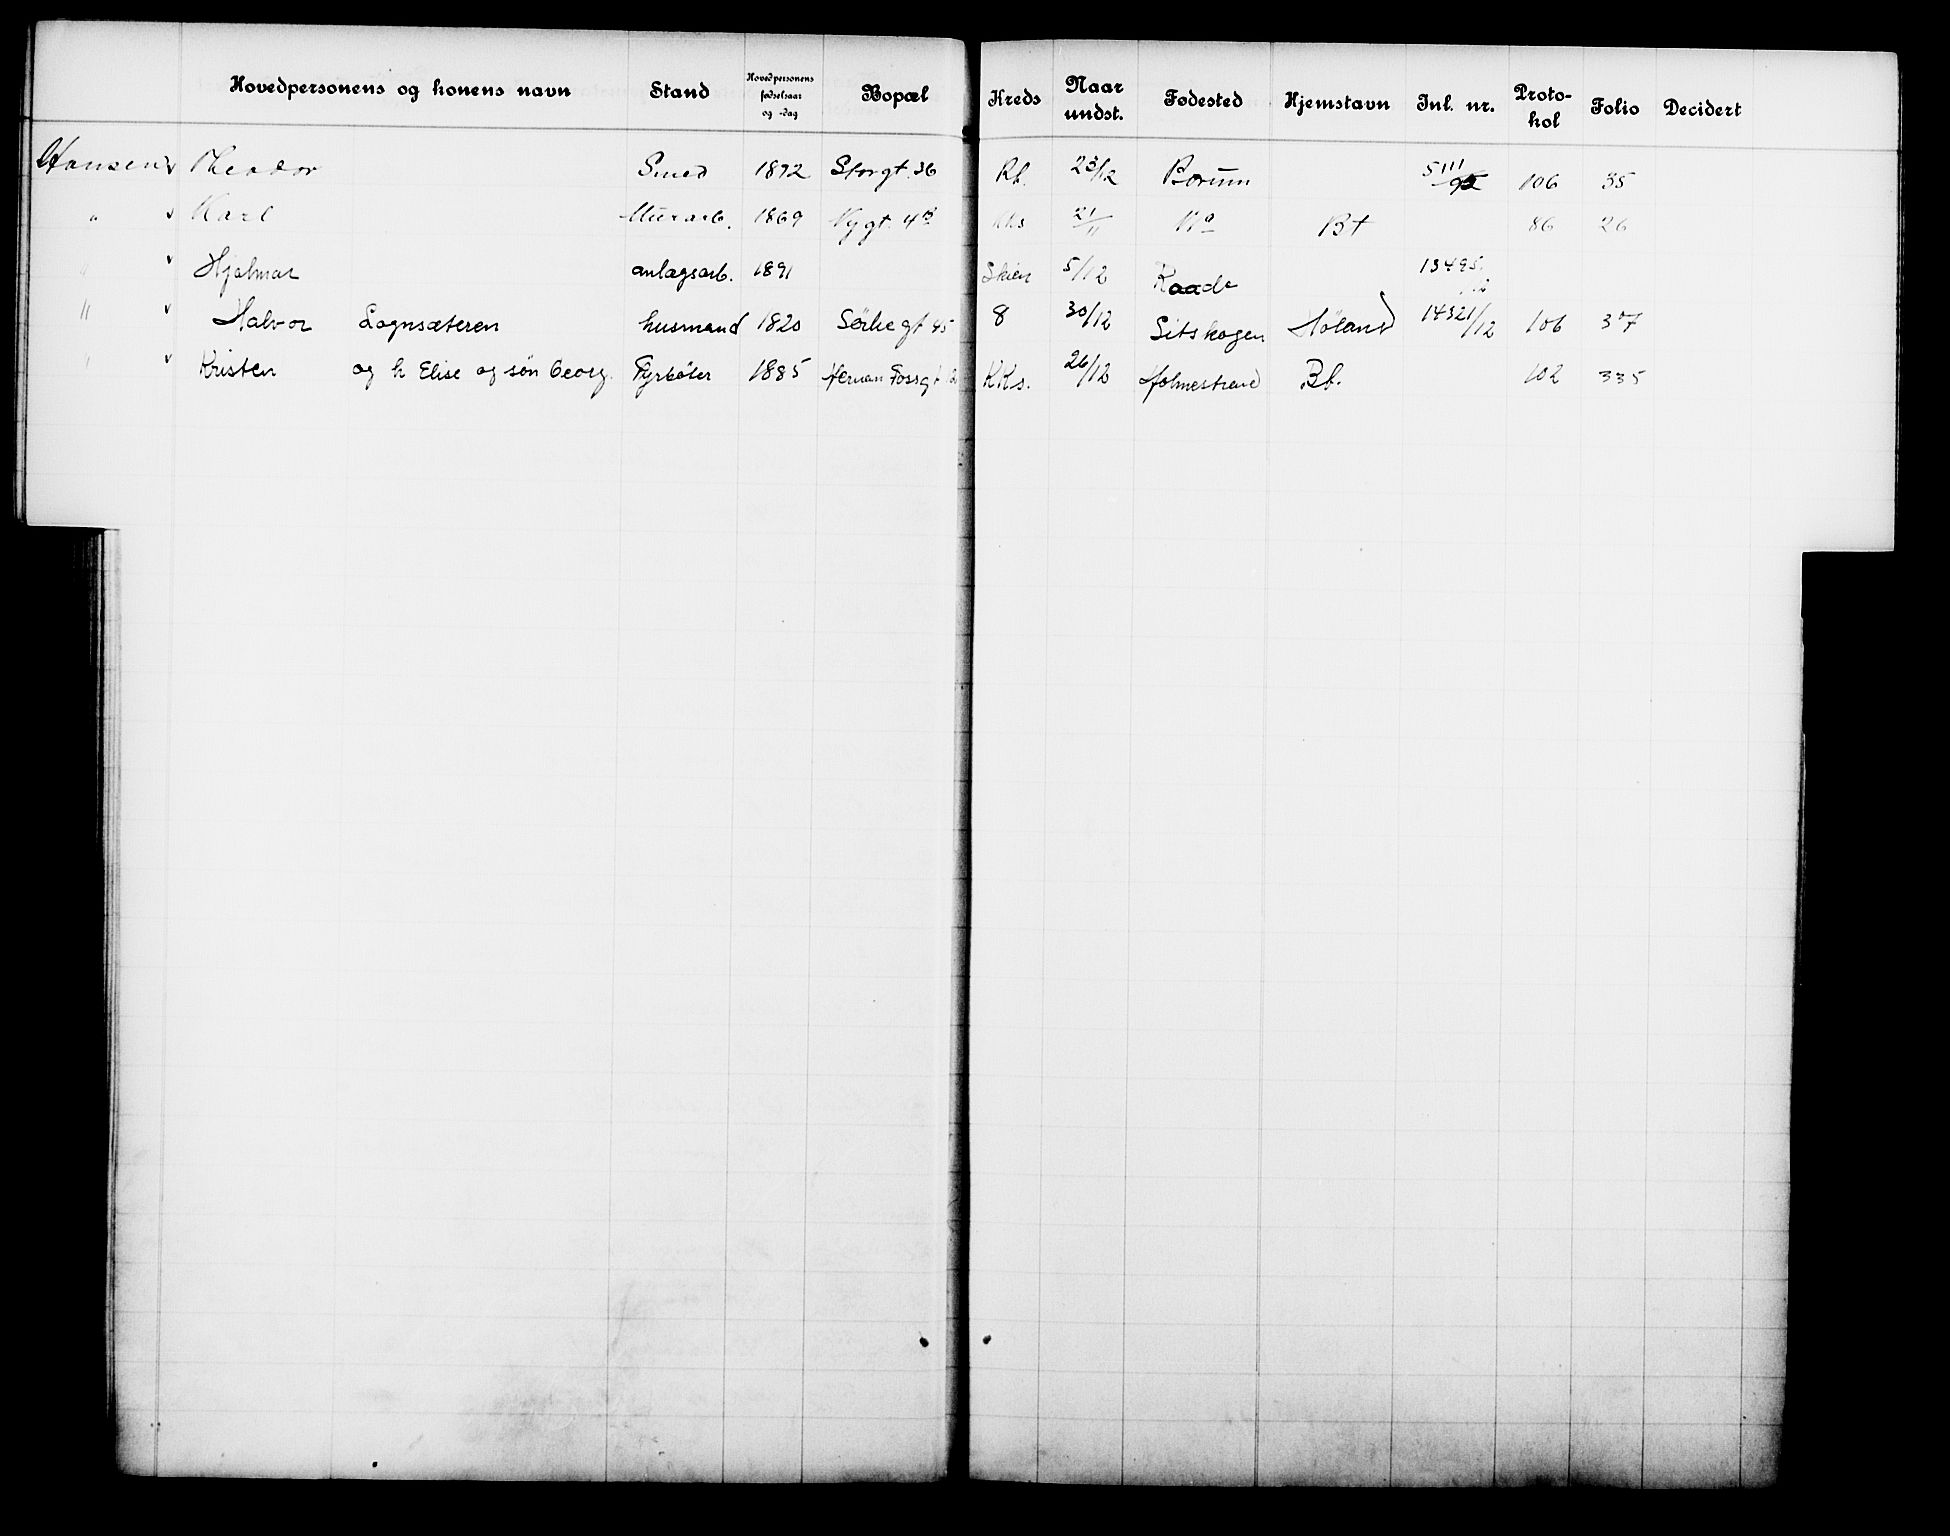 Hovedpersonens og konens navn Stand Hovedpersonens fødselsaar og -dag Bopæl Kreds Naar undst. Fødested Hjemstavn Inl. nr. Proto-kol Folio Decidert
Hansen v Theodor Smed 1892 Storgt. 36 Rb. 23/12 Borum 5111 106 35
" v Karl Murarb. 1869 Nygt. KKs 21/11 Bt 86 26
" v Hjalmar anlægsarb. 1891 Skien 5/12 Raade 13495
" v Halvor Lognsæteren husmand 1820 gt 45 8 30/12 Sitskogen Høland 14321/12 106 307
" v Kristen og h Elise og søn Georg. Fyrbøter 1885 Herman Fossgt 12 KKs. 26/12 Holmestrand Bb. 102 335